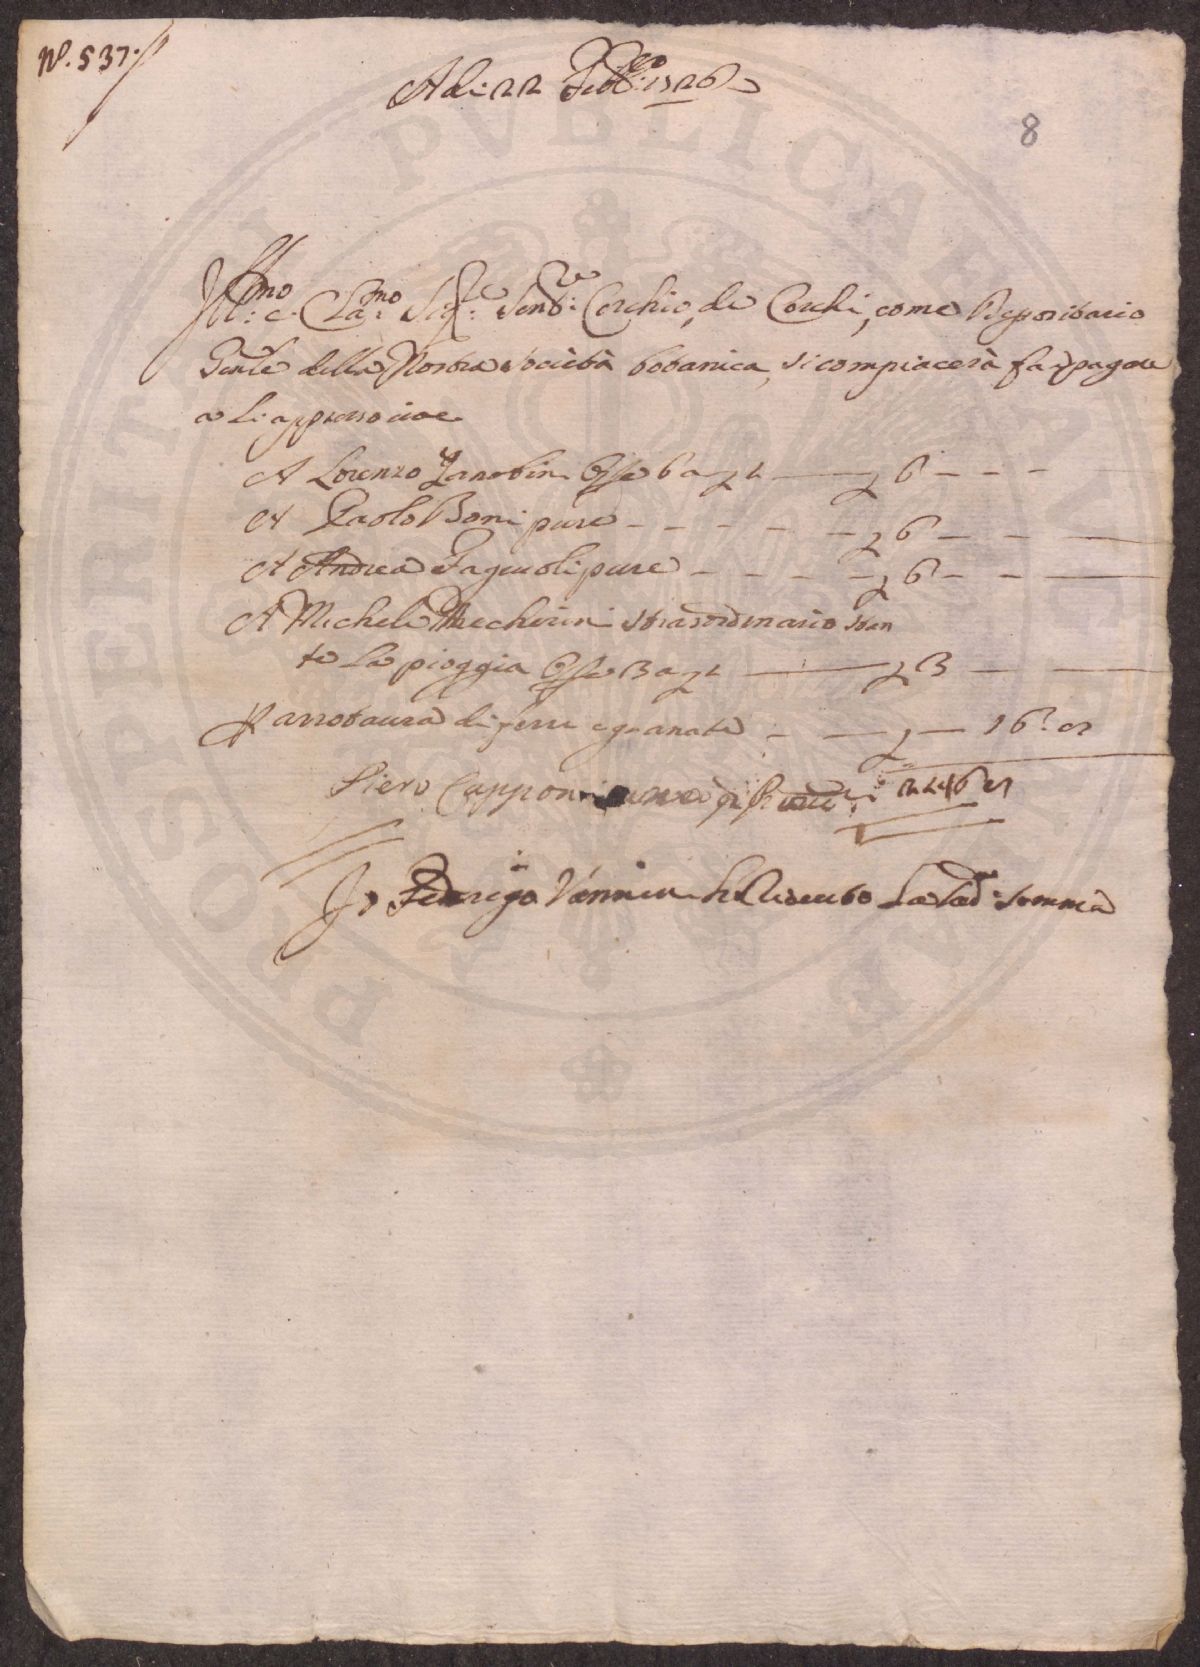 N.º 537.
Adi: 22 Febb:ro 1726
8
Ill:mo e Cla:mo Sig:re Send:re Cerchio de Cerchi, come Depositario
Gen:le della Nostra Società botanica, si compiacerà far pagare
a li appresso cioe
A Lorenzo Zanobini 6 a 6 - - -
A Paolo Boni pure - - - - - - 6 - - -
A Andrea Fagiuoli pure - - - - 6 - - -
A Michele Mecherini strasordinario stan
te la pioggia 3 a 3 - -
P arrotaura di ferri e granate - - 16:
Piero Capponi
Io Federigo Vannini ho riceuto la sud:a somma
PROSPERITATI PVBLICAE